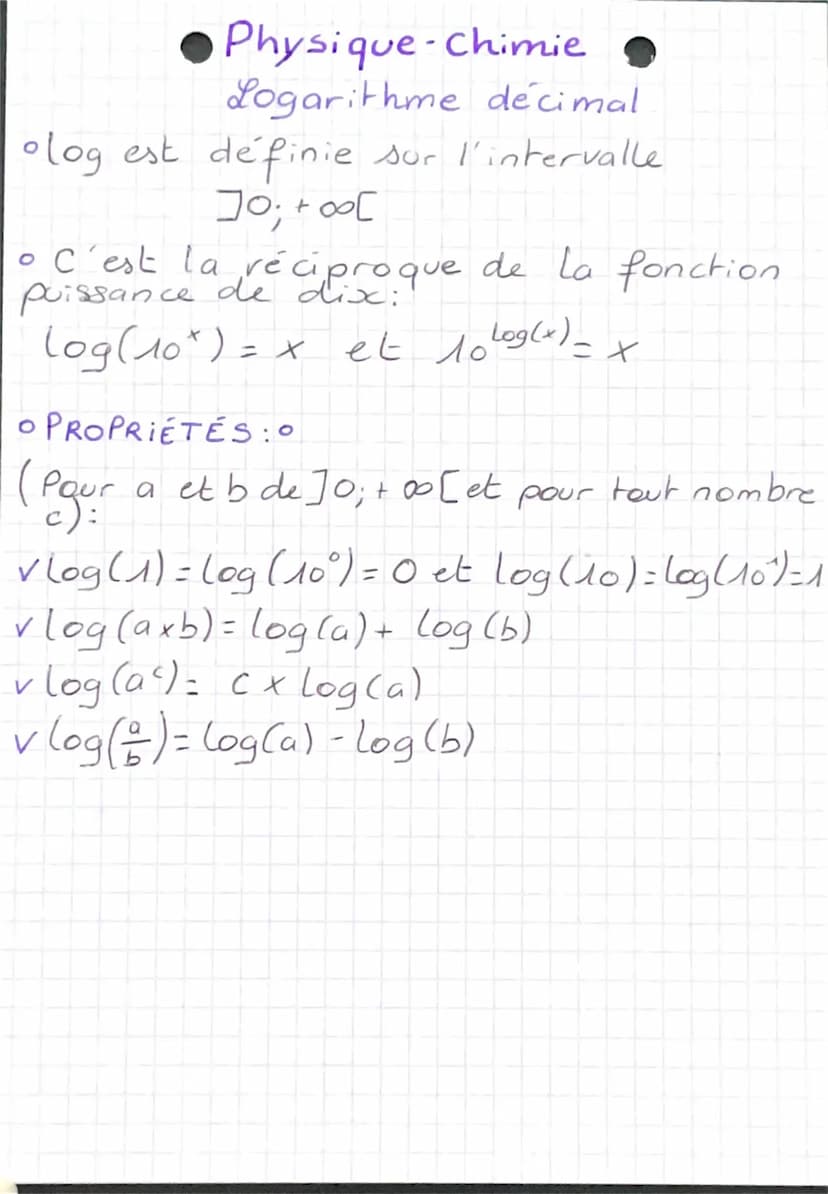 Physique-Chimie
Logarithme décimal
log est définie sur l'intervalle
]0; +∞[
C'est la réciproque de la fonction
puissance de dix:
log(10ˣ) = x et 10^log(x) = x
PROPRIÉTÉS:
(Pour a et b de ]0; + ∞[ et pour tout nombre
c):
v log(1) = log(10⁰) = 0 et log(10) = log(10¹) = 1
v log(a×b) = log(a) + log(b)
v log(aᶜ) = c × log(a)
v log(a/b) = log(a) - log(b)